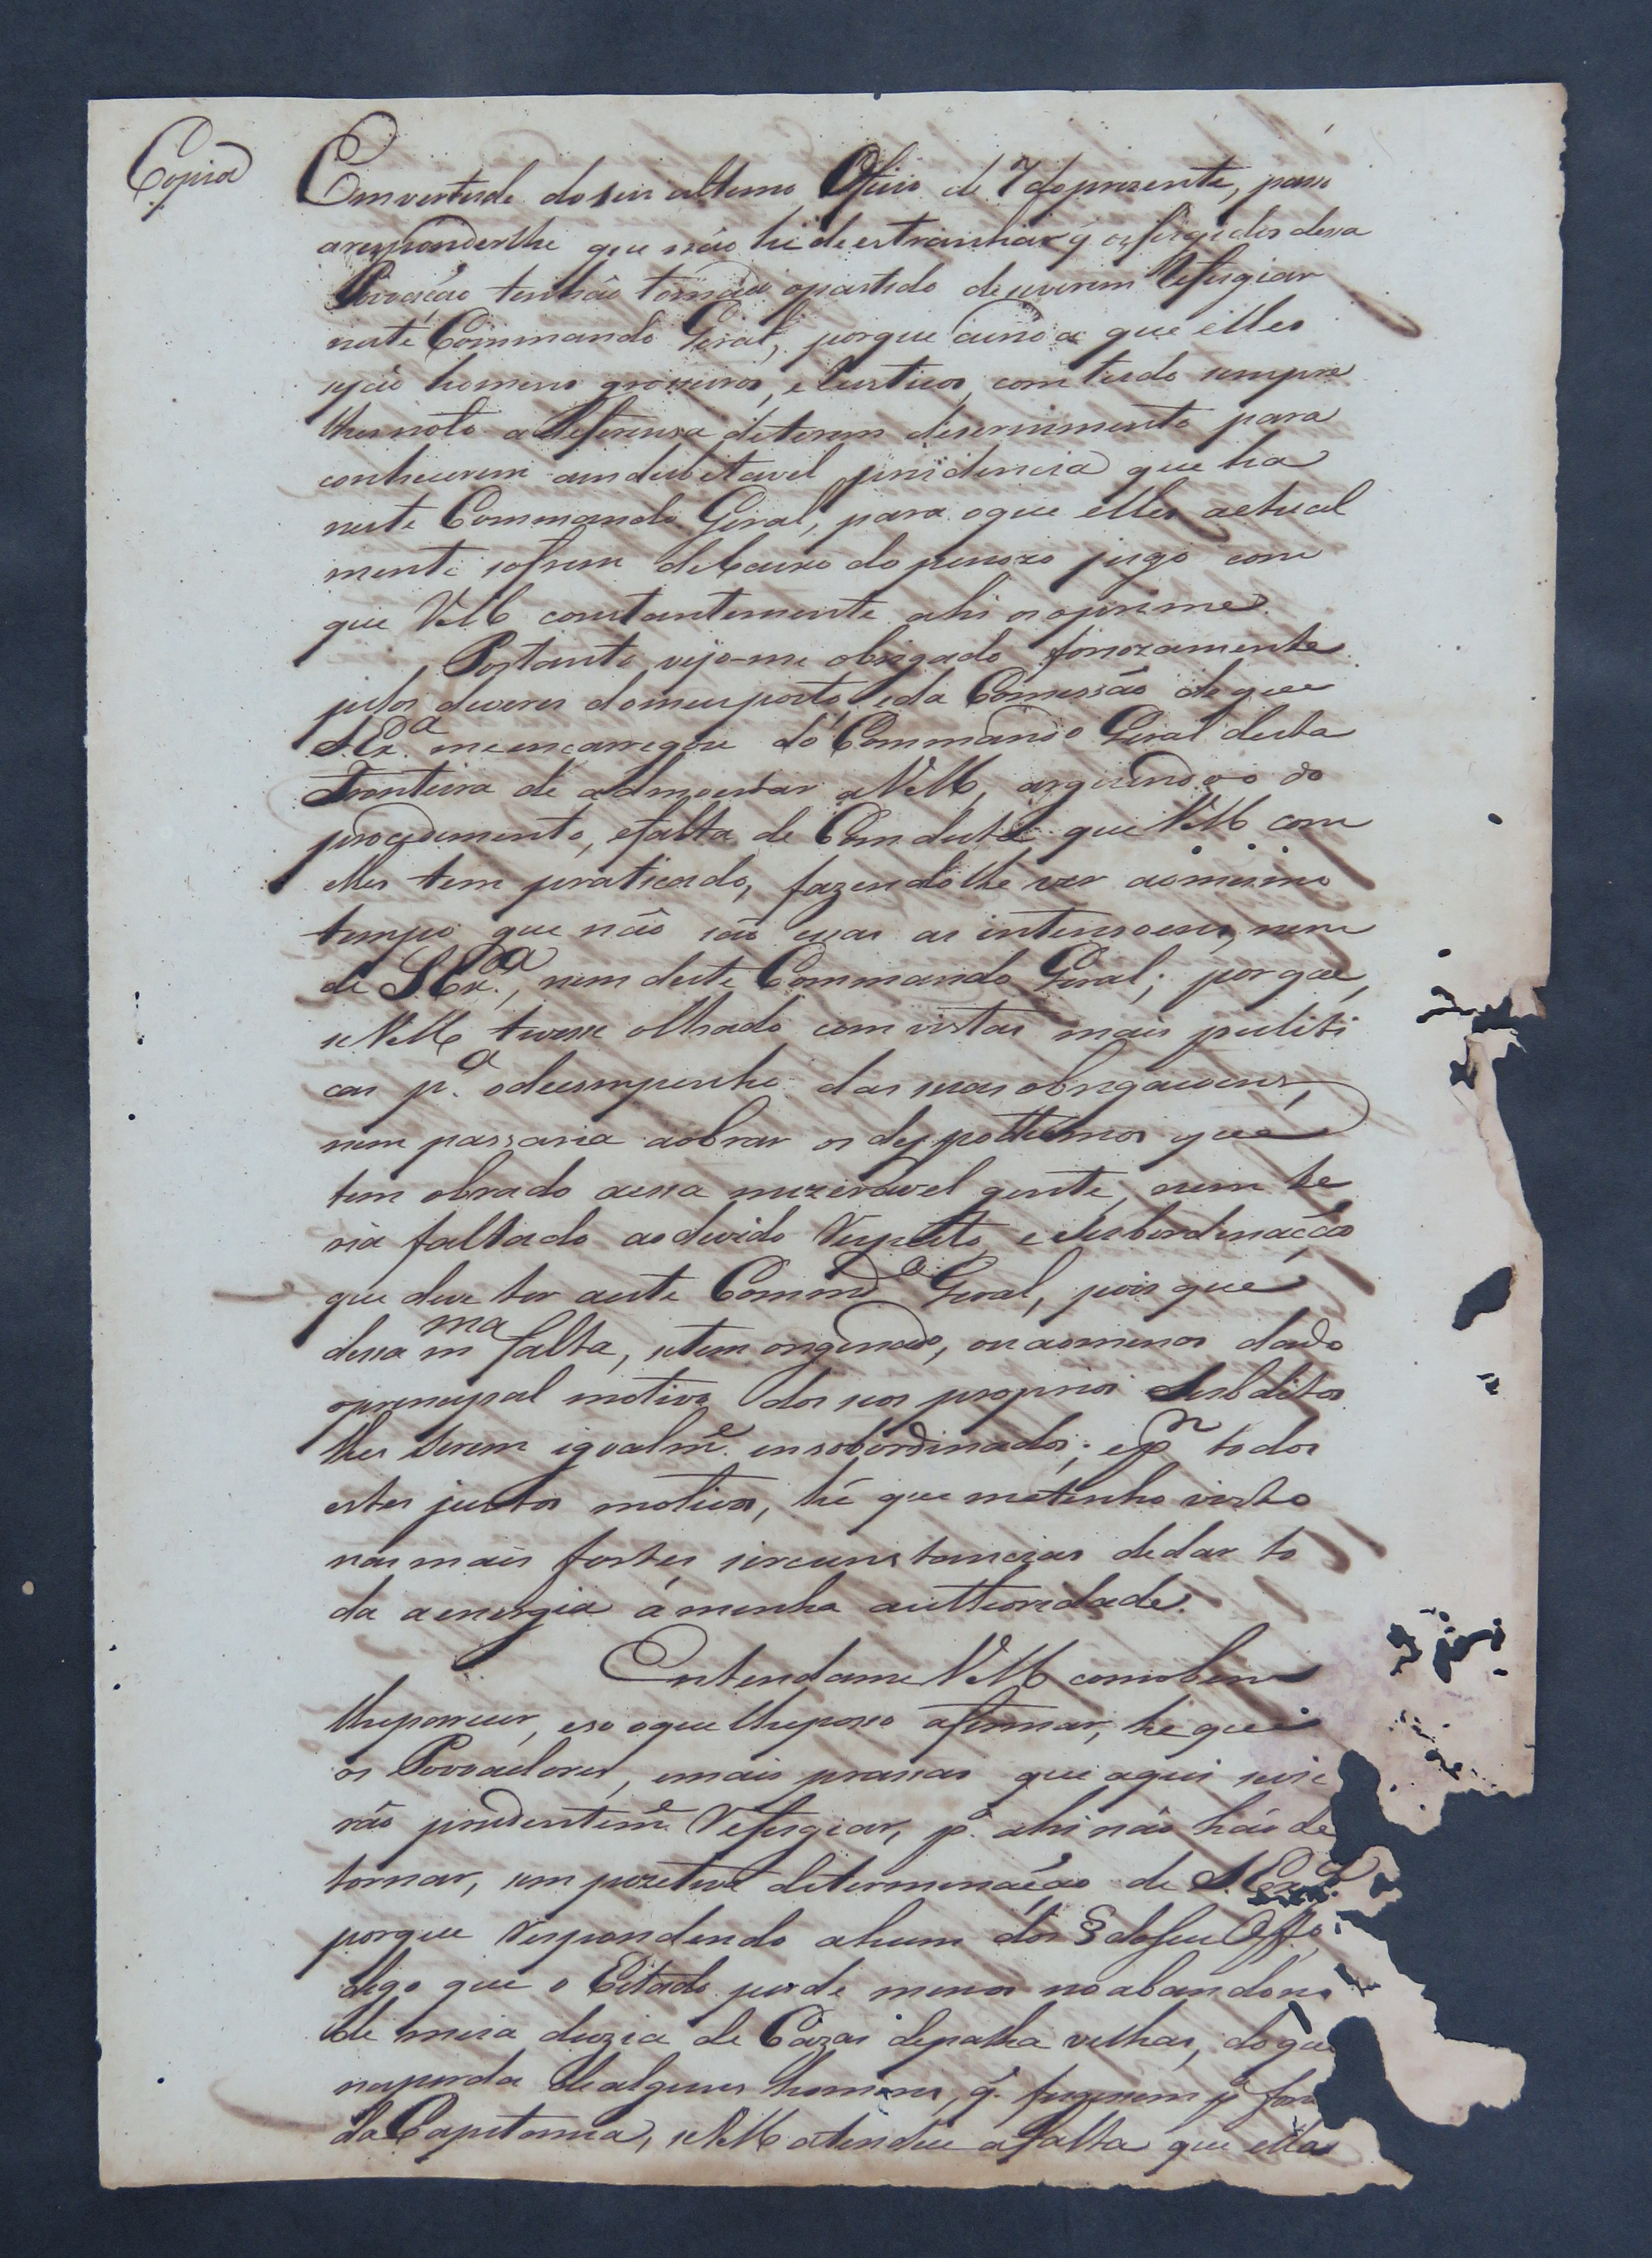 Copia
Em vertude do seu ultimo Oficio de 7 do prezente, passo
a responderlhe que não hé de estranhar q̃ os fugidos desa
Povoação tenhão tomado o partido de virem Refugiar
neste Commando Geral, porque ainda que elles
sejão homens grosseiros, e Rusticos, com tudo sempre
lhes noto a deferensa de terem disernimento para
conhecerem a indubitavel prudencia que ha
neste Commando Geral, para o que elles actual
mente sofrem debaixo do penozo jugo com
que VM constantemente ahi os oprime.
Portanto vejo-me obrigado forsozamente
pelos deveres do meu posto, e da Comissão de que
S. Exª me encarregou do Commando Geral desta
Fronteira de admoestar a VM, arguindo-o do
procedimento, e falta de Conducta que VM com
elles tem praticado, fazendolhe ver ao mesmo
tempo que não são essas as intensoens, nem
de S. Exª, nem deste Commando Geral; por que,
se VM tivese olhado com vistas mais politi
cas pª o desempenho das suas obrigacoens,
nem passaria a obrar os despotismos que
tem obrado a essa mizeravel gente, nem te
ria faltado ao devido Respeito, e subordinação
que deve ter a este Commdº Geral, pois que
dessa mma falta, se tem originado, ou ao menos dado
o prencipal motivo dos seos proprios Subditos
lhes serem igualme. insobordinados; e pr todos
estes justos motivos, hé que me tenho visto
nas mais fortes sircunstancias de dar to
da a energia á minha authoridade.
Entendame VM como bem
lhe parecer, e so o que lhe poso afirmar, hé que
os Povoadores, e mais prasas que aqui se vie
rão prudenteme Refugiar, pª ahi não hão de
tornar, sem pozetiva determinação de S. Exª
porque Respondendo a hum dos § do seu Offº,
digo que o Estado perde menos no abandono
de meia duzia de Cazas de palha velhas, do que
na perda de alguns homens, q̃ fugirem pª fora
da Capitania, se VM atendeu a falta que elles